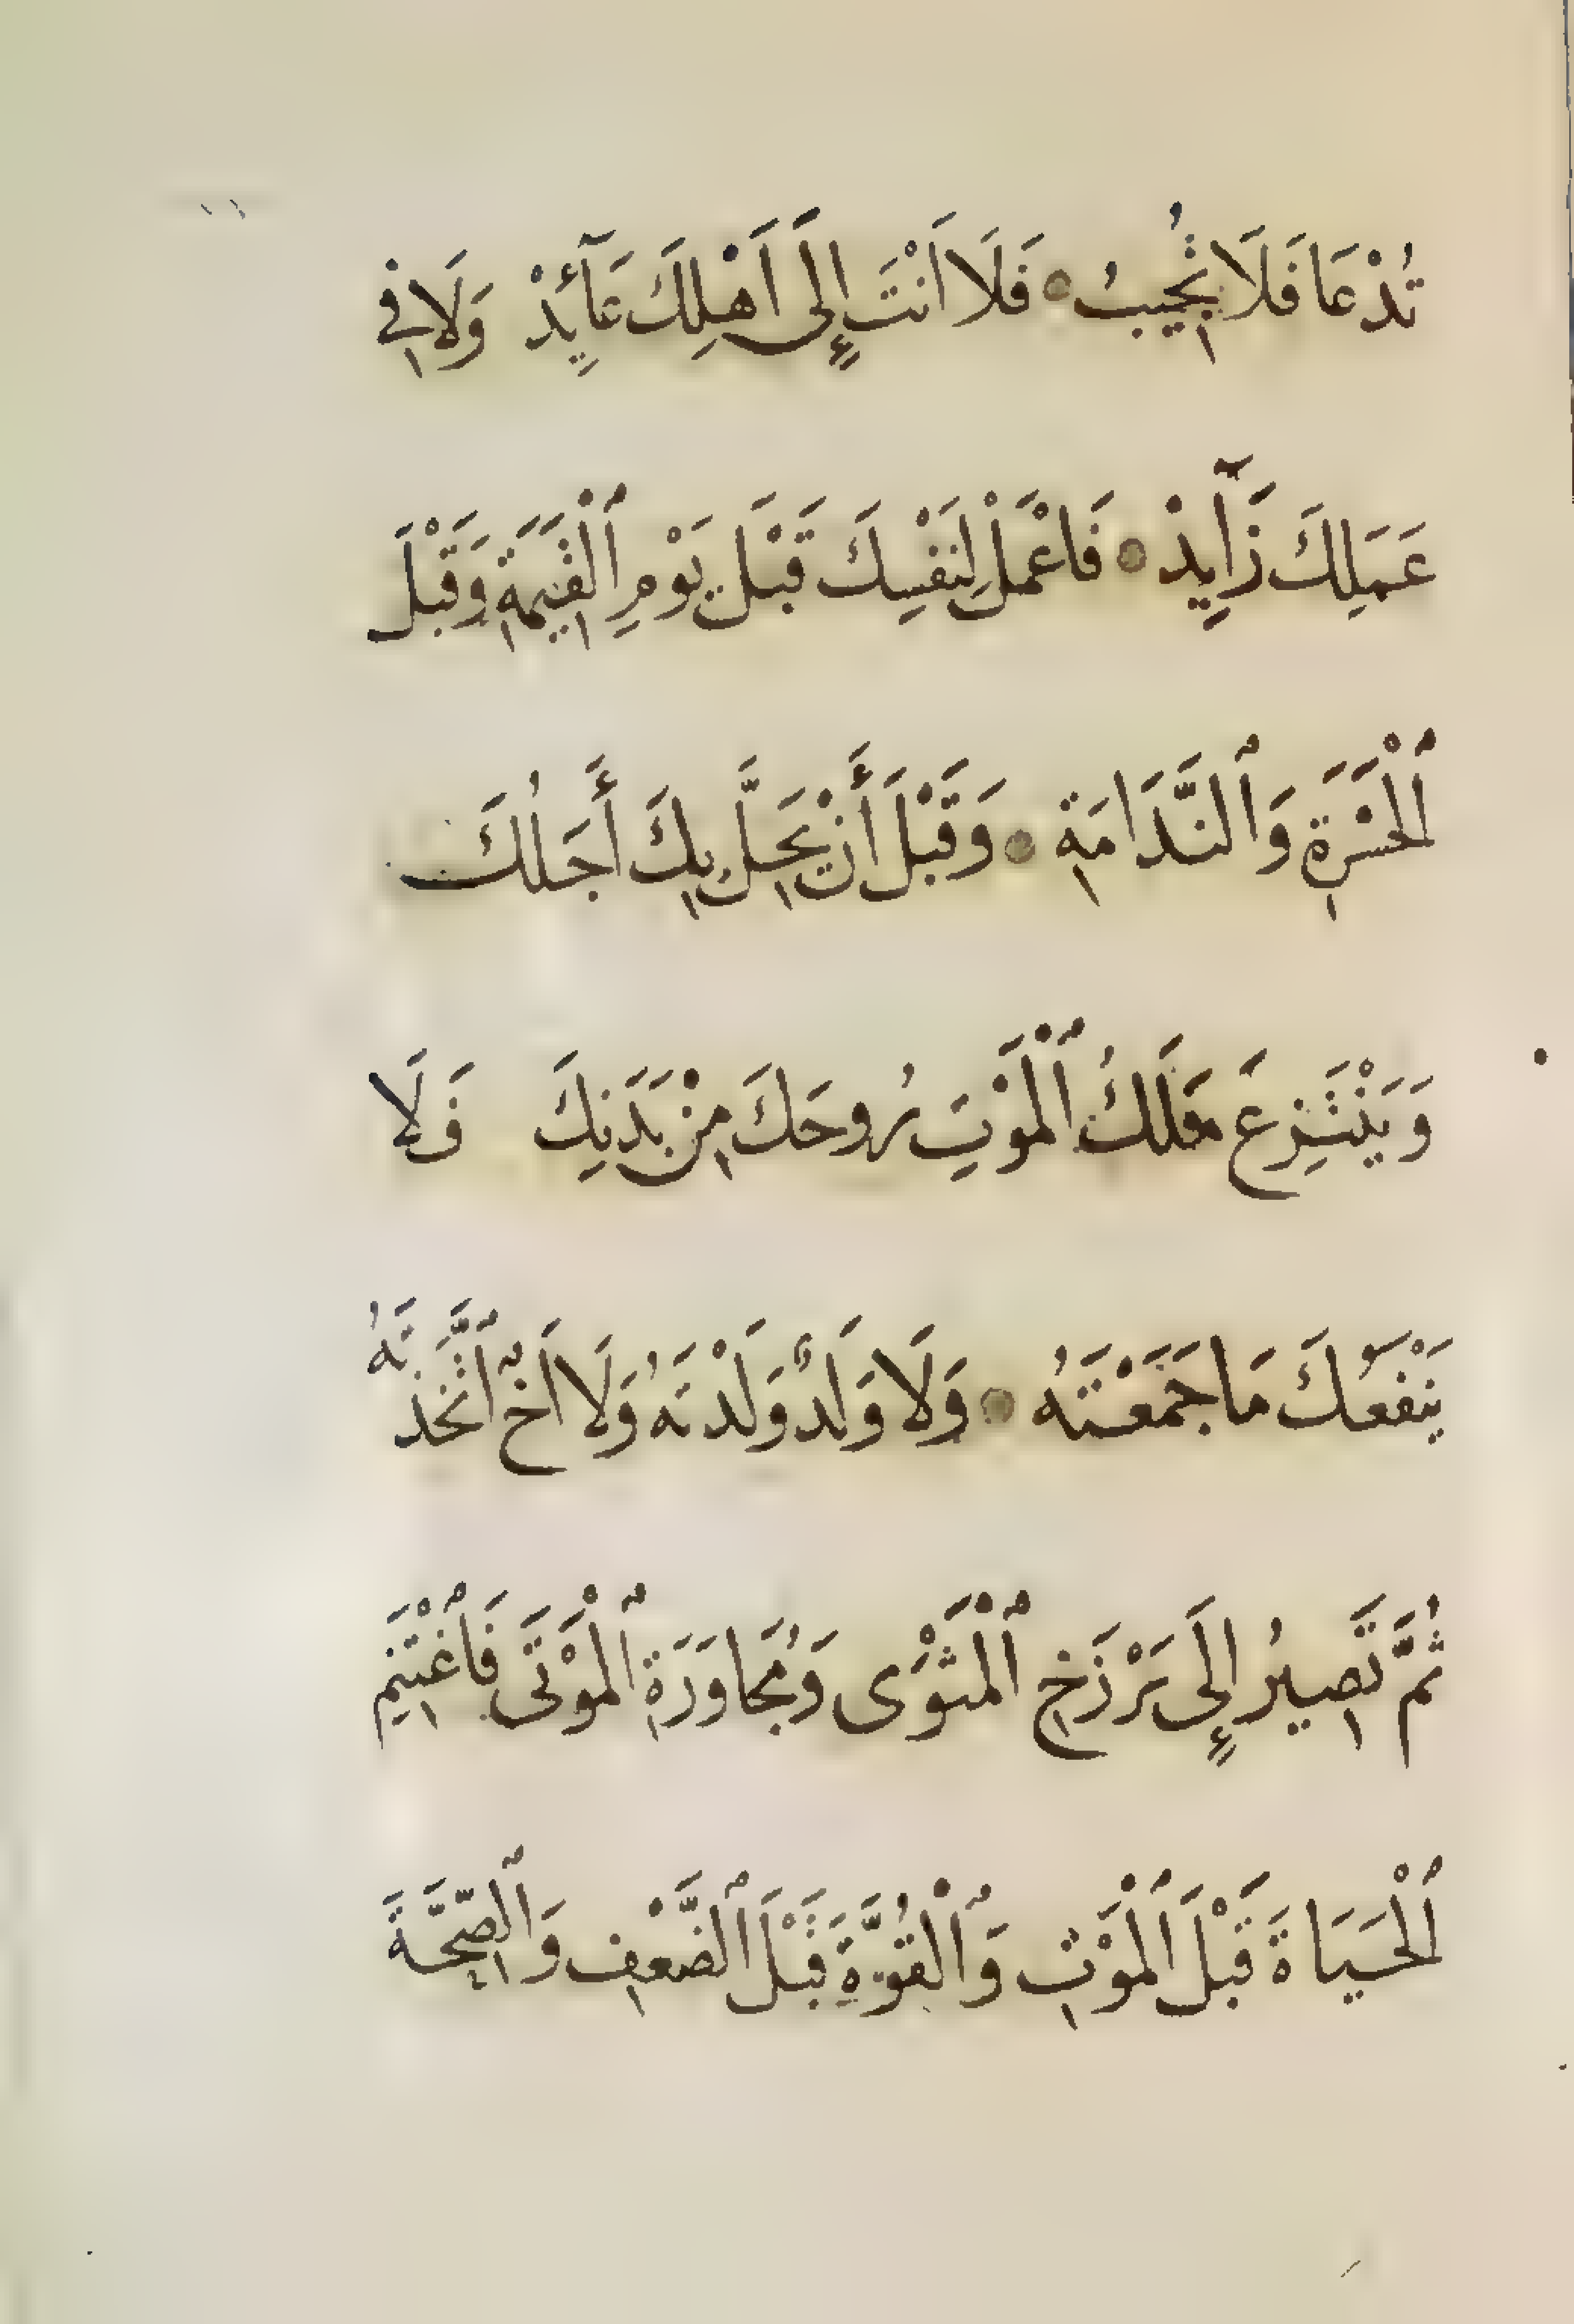 تُدْعَا فَلَا تُجِيبُ فَلَا اَنْتَ إِلَى اَهْلِكَ عَآئِدْ وَلَا فِي
عَمَلِكَ زَآيِدْ فَاعْمَلْ لِنَفْسِكَ قَبْلَ يَوْمِ ٱلْقِيَمَةِ وَقَبْلَ
ٱلْحَسْرَةِ وَٱلنَّدَامَةِ وَقَبْلَ أَنْ يَحِلَّ بِكَ أَجَلُكَ
وَيَنْتَزِعَ مَلَكُ ٱلْمَوْتِ رُوحَكَ مِنْ بَدَنِكَ فَلَا
يَنْفَعُكَ مَا جَمَعْتَهُ وَلَا وَلَدٌ وَلَدْتَهُ وَلَا اَخٌ ٱتَّخَذْتَهُ
ثُمَّ تَصِيرُ إِلَى بَرْزَخِ ٱلْمَثْوَى وَمُجَاوَرَةِ ٱلْمَوْتَى فَٱغْتَنِمِ
ٱلْحَيَاةَ قَبْلَ ٱلْمَوْتِ وَٱلْقُوَّةَ قَبْلَ ٱلضَّعْفِ وَٱلصِّحَّةَ